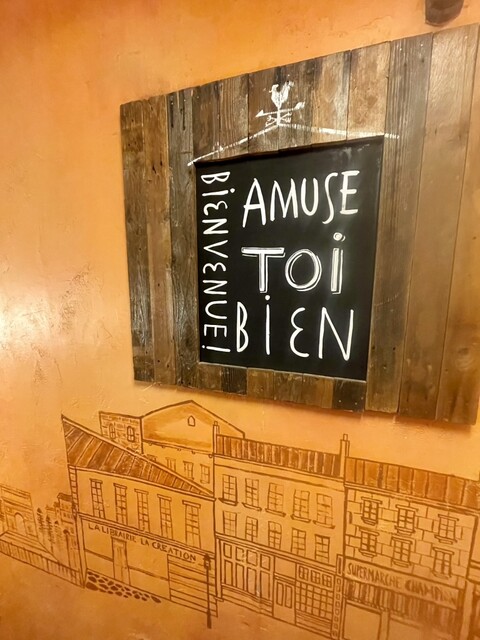 BIENVENUE!
AMUSE
TOI
BIEN
LA LIBRAIRIE LA CREATION
SUPERMARCHE CHAMPION